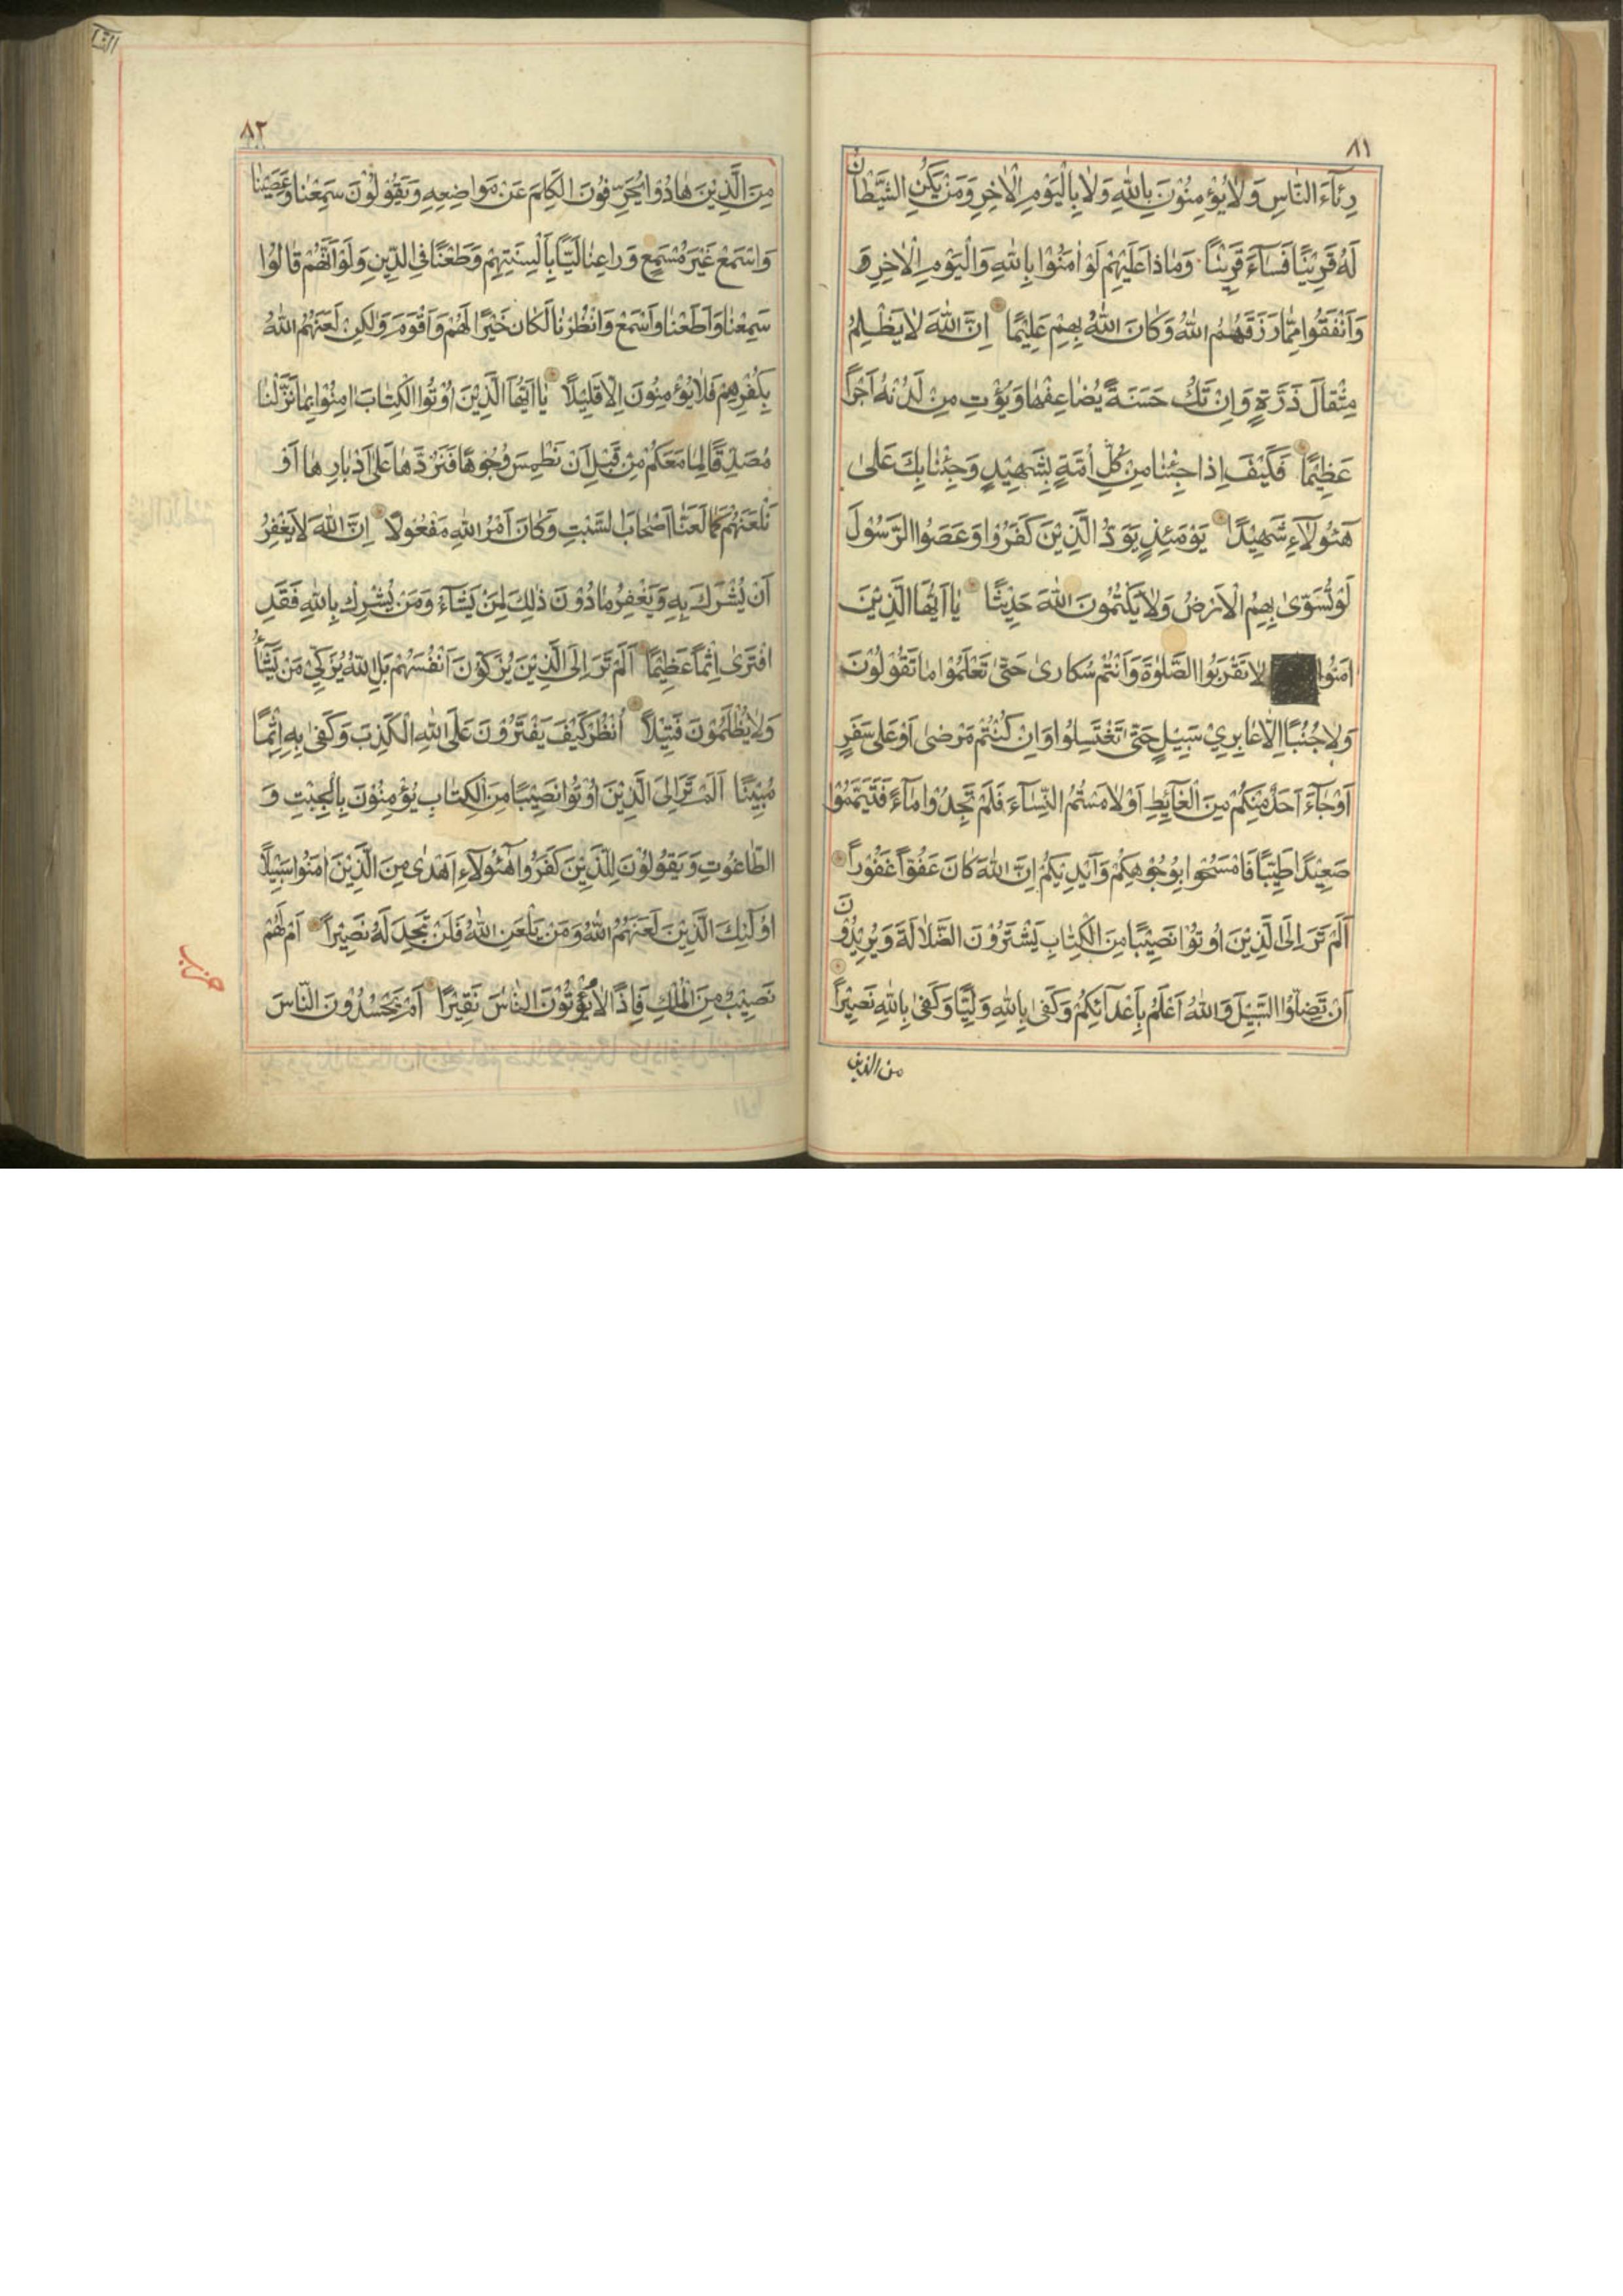 ٨١
رِئَاءَ النَّاسِ وَلَا يُؤْمِنُوْنَ بِاللّٰهِ وَلَا بِالْيَوْمِ الْاٰخِرِ وَمَنْ يَكُنِ الشَّيْطَانُ
لَهُ قَرِيْنًا فَسَآءَ قَرِيْنًا وَمَاذَا عَلَيْهِمْ لَوْ اٰمَنُوْا بِاللّٰهِ وَالْيَوْمِ الْاٰخِرِ وَ
وَاَنْفَقُوا مِمَّا رَزَقَهُمُ اللّٰهُ وَكَانَ اللّٰهُ بِهِمْ عَلِيْمًا اِنَّ اللّٰهَ لَا يَظْلِمُ
مِثْقَالَ ذَرَّةٍ وَاِنْ تَكُ حَسَنَةً يُضَاعِفْهَا وَيُؤْتِ مِنْ لَدُنْهُ اَجْرًا
عَظِيْمًا فَكَيْفَ اِذَا جِئْنَا مِنْ كُلِّ اُمَّةٍ بِشَهِيْدٍ وَجِئْنَا بِكَ عَلىٰ
هٰٓئُولَآءِ شَهِيْدًا يَوْمَئِذٍ يَوَدُّ الَّذِيْنَ كَفَرُوْا وَعَصَوُا الرَّسُوْلَ
لَوْ تُسَوّٰى بِهِمُ الْاَرْضُ وَلَا يَكْتُمُونَ اللّٰهَ حَدِيْثًا يَا اَيُّهَا الَّذِيْنَ
اٰمَنُوْا لَا تَقْرَبُوا الصَّلٰوةَ وَاَنْتُمْ سُكَارىٰ حَتّٰى تَعْلَمُوْا مَا تَقُوْلُوْنَ
وَلَا جُنُبًا اِلَّا عَابِرِيْ سَبِيْلٍ حَتّٰى تَغْتَسِلُوا وَاِنْ كُنْتُمْ مَرْضىٰ اَوْ عَلىٰ سَفَرٍ
اَوْ جَآءَ اَحَدٌ مِنْكُمْ مِنَ الْغَآئِطِ اَوْ لَامَسْتُمُ النِّسَآءَ فَلَمْ تَجِدُوْا مَآءً فَتَيَمَّمُوْا
صَعِيْدًا طَيِّبًا فَامْسَحُوا بِوُجُوْهِكُمْ وَاَيْدِيْكُمْ اِنَّ اللّٰهَ كَانَ عَفُوًّا غَفُوْرًا
اَلَمْ تَرَ اِلَى الَّذِيْنَ اُوْتُوْا نَصِيْبًا مِنَ الْكِتَابِ يَشْتَرُوْنَ الضَّلَالَةَ وَيُرِيْدُوْنَ
اَنْ تَضِلُّوا السَّبِيْلَ وَاللّٰهُ اَعْلَمُ بِاَعْدَآئِكُمْ وَكَفىٰ بِاللّٰهِ وَلِيًّا وَكَفىٰ بِاللّٰهِ نَصِيْرًا
من الذين
٨٢
مِنَ الَّذِيْنَ هَادُوْا يُحَرِّفُوْنَ الْكَلِمَ عَنْ مَوَاضِعِهِ وَيَقُوْلُوْنَ سَمِعْنَا وَعَصَيْنَا
وَاسْمَعْ غَيْرَ مُسْمَعٍ وَرَاعِنَا لَيًّا بِاَلْسِنَتِهِمْ وَطَعْنًا فِي الدِّيْنِ وَلَوْ اَنَّهُمْ قَالُوْا
سَمِعْنَا وَاَطَعْنَا وَاسْمَعْ وَانْظُرْنَا لَكَانَ خَيْرًا لَهُمْ وَاَقْوَمَ وَلٰكِنْ لَعَنَهُمُ اللّٰهُ
بِكُفْرِهِمْ فَلَا يُؤْمِنُوْنَ اِلَّا قَلِيْلًا يَا اَيُّهَا الَّذِيْنَ اُوْتُوا الْكِتَابَ اٰمِنُوْا بِمَا نَزَّلْنَا
مُصَدِّقًا لِمَا مَعَكُمْ مِنْ قَبْلِ اَنْ نَطْمِسَ وُجُوْهًا فَنَرُدَّهَا عَلىٰ اَدْبَارِهَا اَوْ
نَلْعَنَهُمْ كَمَا لَعَنَّا اَصْحَابَ السَّبْتِ وَكَانَ اَمْرُ اللّٰهِ مَفْعُوْلًا اِنَّ اللّٰهَ لَا يَغْفِرُ
اَنْ يُشْرَكَ بِهِ وَيَغْفِرُ مَا دُوْنَ ذٰلِكَ لِمَنْ يَشَآءُ وَمَنْ يُشْرِكْ بِاللّٰهِ فَقَدِ
افْتَرىٰ اِثْمًا عَظِيْمًا اَلَمْ تَرَ اِلَى الَّذِيْنَ يُزَكُّوْنَ اَنْفُسَهُمْ بَلِ اللّٰهُ يُزَكِّيْ مَنْ يَشَآءُ
وَلَا يُظْلَمُوْنَ فَتِيْلًا اُنْظُرْ كَيْفَ يَفْتَرُوْنَ عَلَى اللّٰهِ الْكَذِبَ وَكَفىٰ بِهِ اِثْمًا
مُبِيْنًا اَلَمْ تَرَ اِلَى الَّذِيْنَ اُوْتُوْا نَصِيْبًا مِنَ الْكِتَابِ يُؤْمِنُوْنَ بِالْجِبْتِ وَ
الطَّاغُوْتِ وَيَقُوْلُوْنَ لِلَّذِيْنَ كَفَرُوْا هٰٓئُولَآءِ اَهْدىٰ مِنَ الَّذِيْنَ اٰمَنُوْا سَبِيْلًا
اُولٰٓئِكَ الَّذِيْنَ لَعَنَهُمُ اللّٰهُ وَمَنْ يَلْعَنِ اللّٰهُ فَلَنْ تَجِدَ لَهُ نَصِيْرًا اَمْ لَهُمْ
نَصِيْبٌ مِنَ الْمُلْكِ فَاِذًا لَا يُؤْتُوْنَ النَّاسَ نَقِيْرًا اَمْ يَحْسُدُوْنَ النَّاسَ
حزب